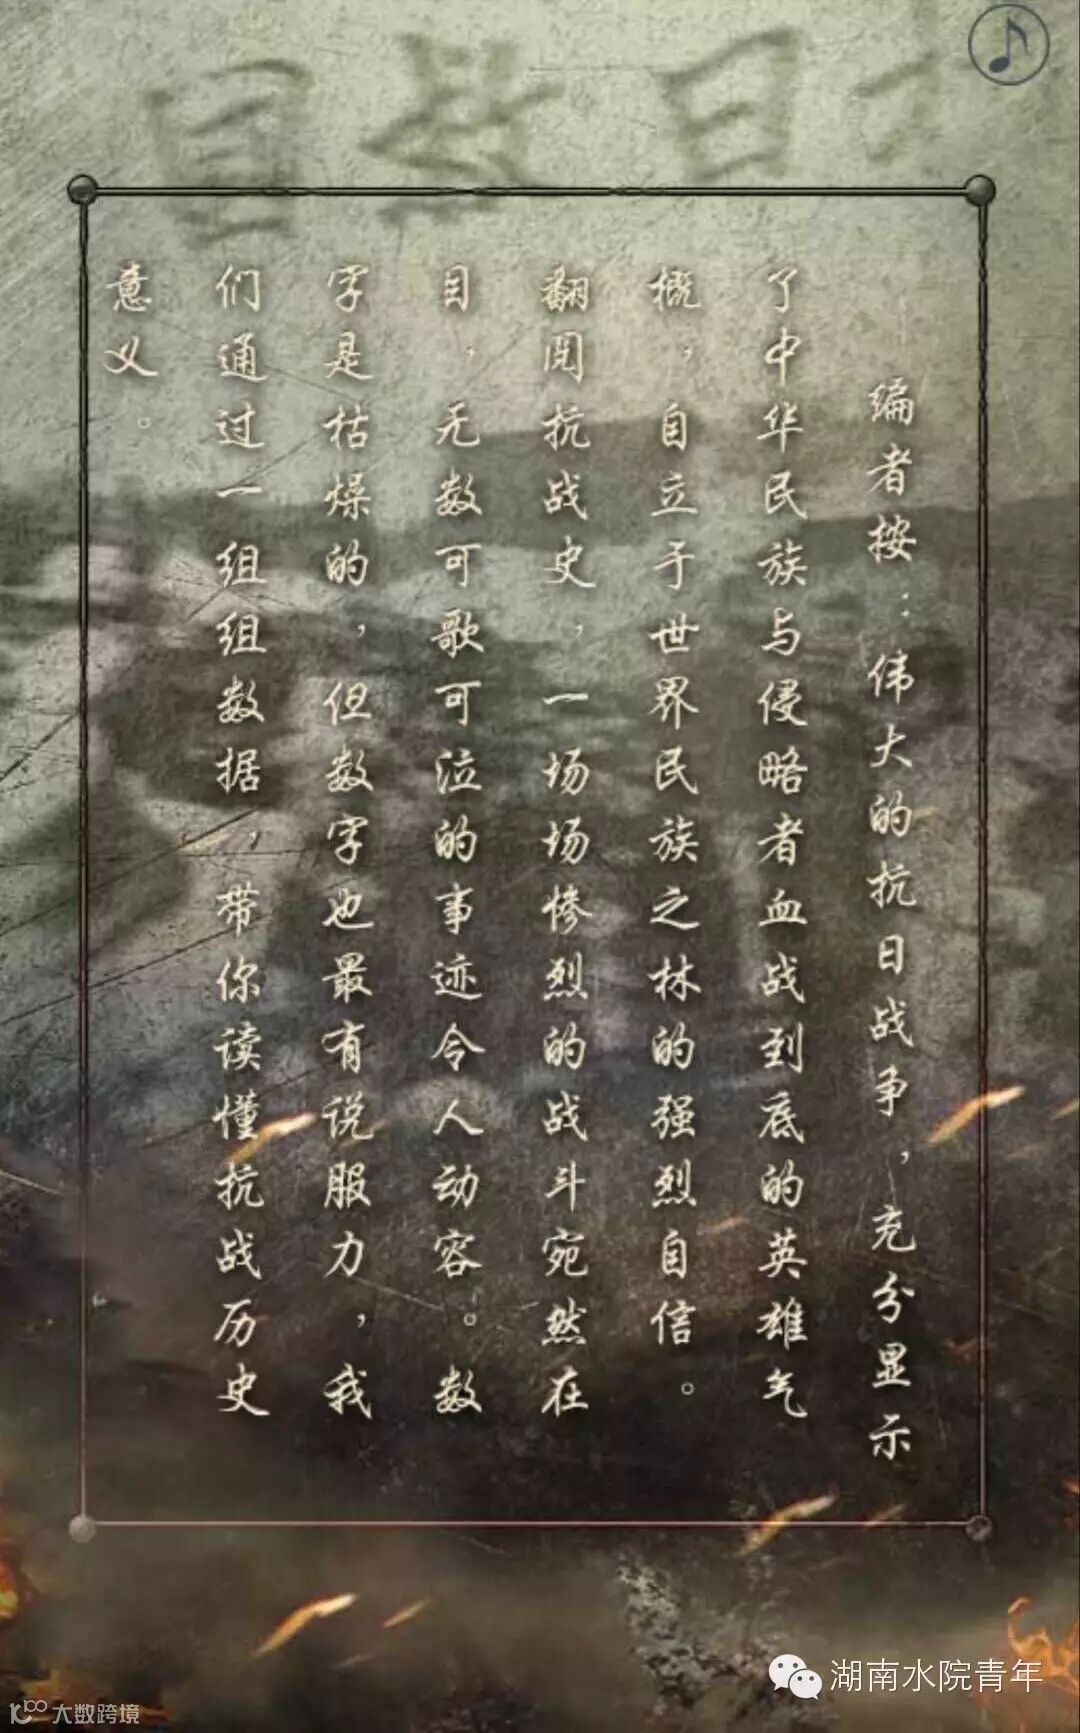 编者按：伟大的抗日战争，充分显示
了中华民族与侵略者血战到底的英雄气
概，自立于世界民族之林的强烈自信。
翻阅抗战史，一场场惨烈的战斗宛然在
目，无数可歌可泣的事迹令人动容。数
字是枯燥的，但数字也最有说服力，我
们通过一组组数据，带你读懂抗战历史
意义。
湖南水院青年
大数跨境